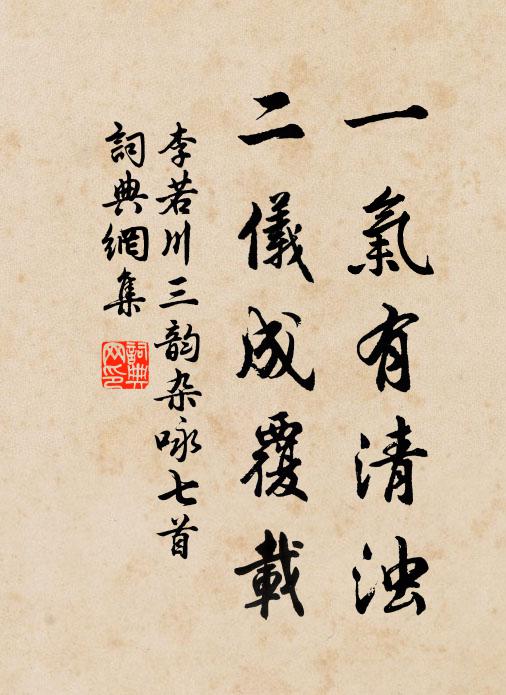 一氣有清浊
二儀成覆載
李若川三韵杂咏七首
詞典網集
詞典
网印